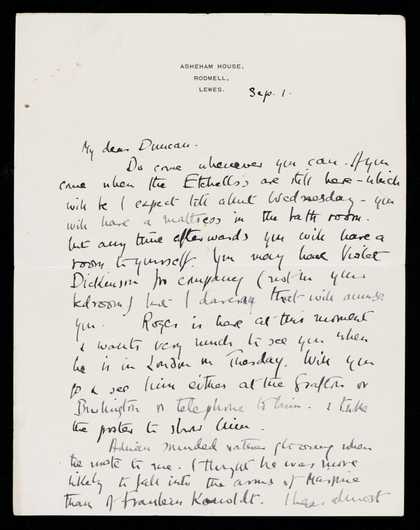 ASHEHAM HOUSE,
RODMELL,
LEWES.
Sep. 1.
My dear Duncan.
Do come whenever you can. If you
come when the Etchells's are still here - which
will be I expect till about Wednesday - you
will have a mattress in the bath room.
but any time afterwards you will have a
room to yourself. You may have Violet
Dickinson for company (not in your
bedroom) but I daresay that will amuse
you. Roger is here at this moment
& wants very much to see you when
he is in London on Tuesday. Will you
go & see him either at the Grafton or
Burlington or telephone to him. & take
the poster to show him.
Adrian sounded rather gloomy when
he wrote to me. I thought he was more
likely to fall into the arms of
than of Fraulein I hear almost